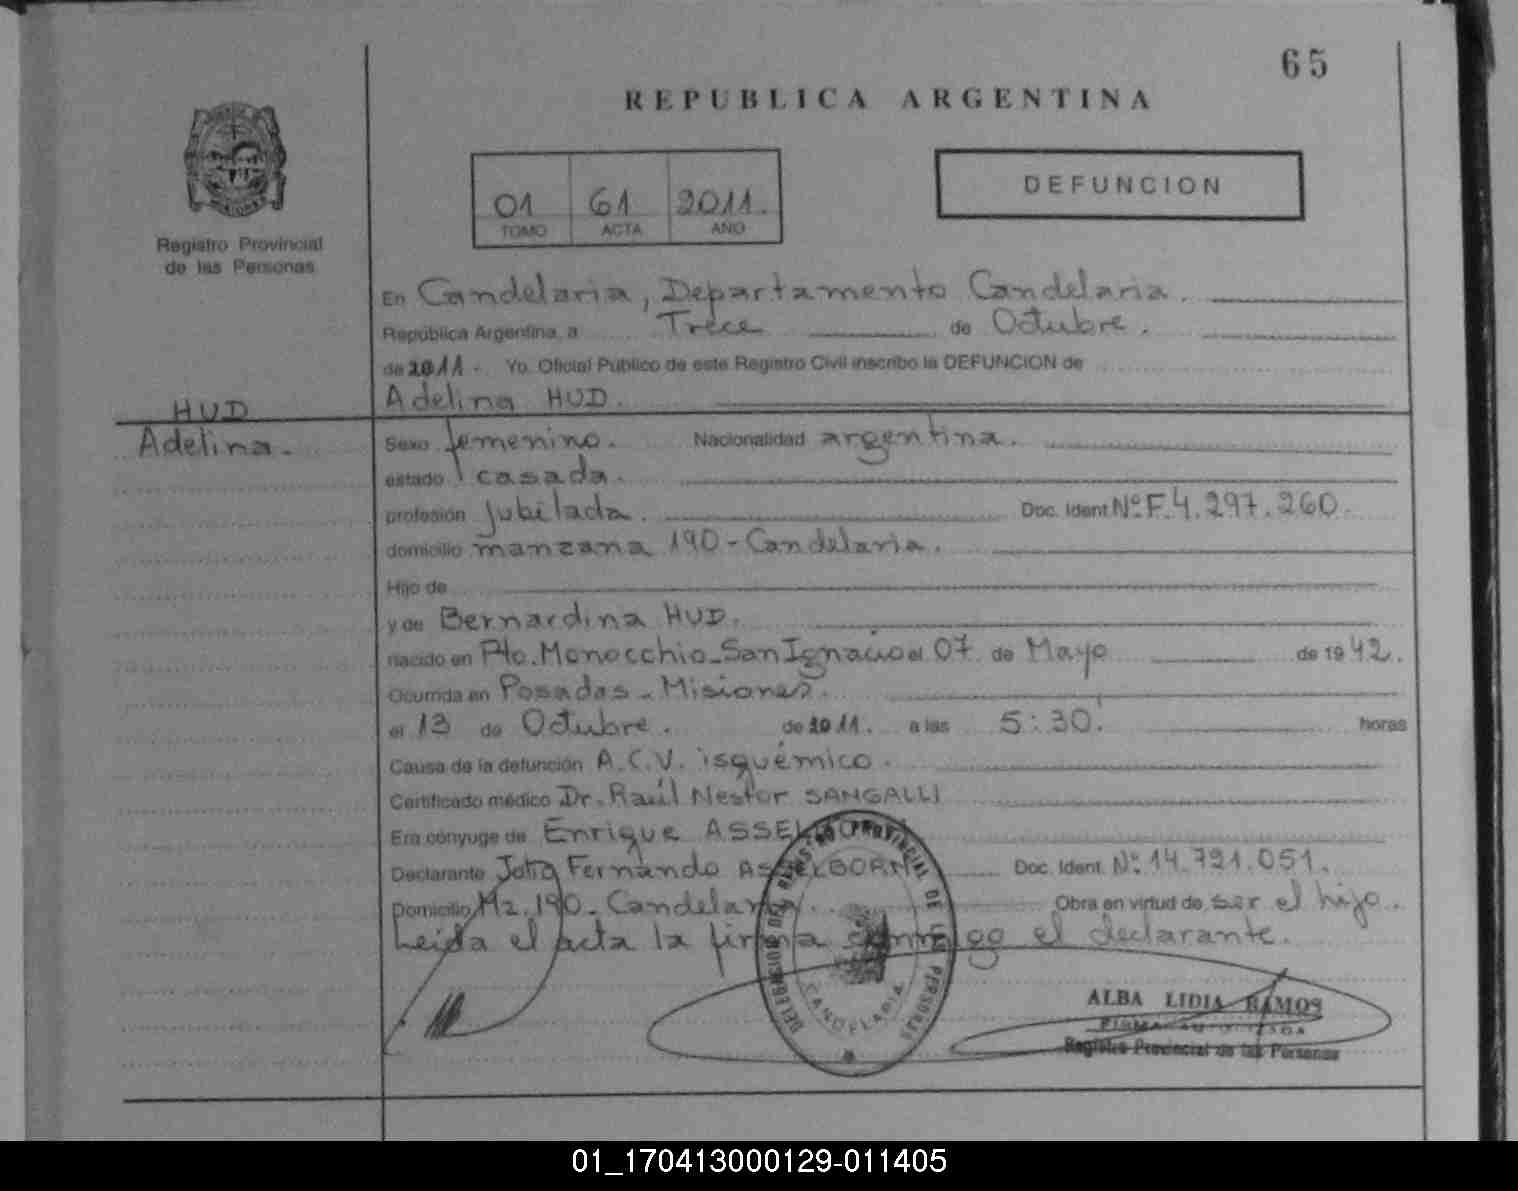 65
REPUBLICA ARGENTINA
01 61 2011.
TOMO ACTA AÑO
DEFUNCION
Registro Provincial
de las Personas
En Candelaria, Departamento Candelaria.
República Argentina, a Trece de Octubre.
de 2011. Yo. Oficial Público de este Registro Civil inscribo la DEFUNCION de
Adelina HUD.
HUD
Adelina.
Sexo femenino. Nacionalidad argentina.
estado casada.
profesión jubilada. Doc. Ident. Nº F. 4.297.260.
domicilio manzana 190 - Candelaria.
Hijo de
y de Bernardina HUD.
nacido en Pto. Monocchio - San Ignacio el 07 de Mayo de 1942.
Ocurrida en Posadas - Misiones.
el 13 de Octubre. de 2011. a las 5:30' horas
Causa de la defunción A.C.V. isquémico.
Certificado médico Dr. Raúl Nestor SANGALLI
Era cónyuge de Enrique
Declarante Julio Fernando ASSELBORN Doc. Ident. Nº 14.791.051.
Domicilio Mz. 190 - Candelaria. Obra en virtud de ser el hijo.
Leida el acta la firma conmigo el declarante.
DELEGACION DEL REGISTRO PROVINCIAL DE LAS PERSONAS
CANDELARIA
ALBA LIDIA RAMOS
FIRMA AUTORIZADA
Registro Provincial de las Personas
01_170413000129-011405